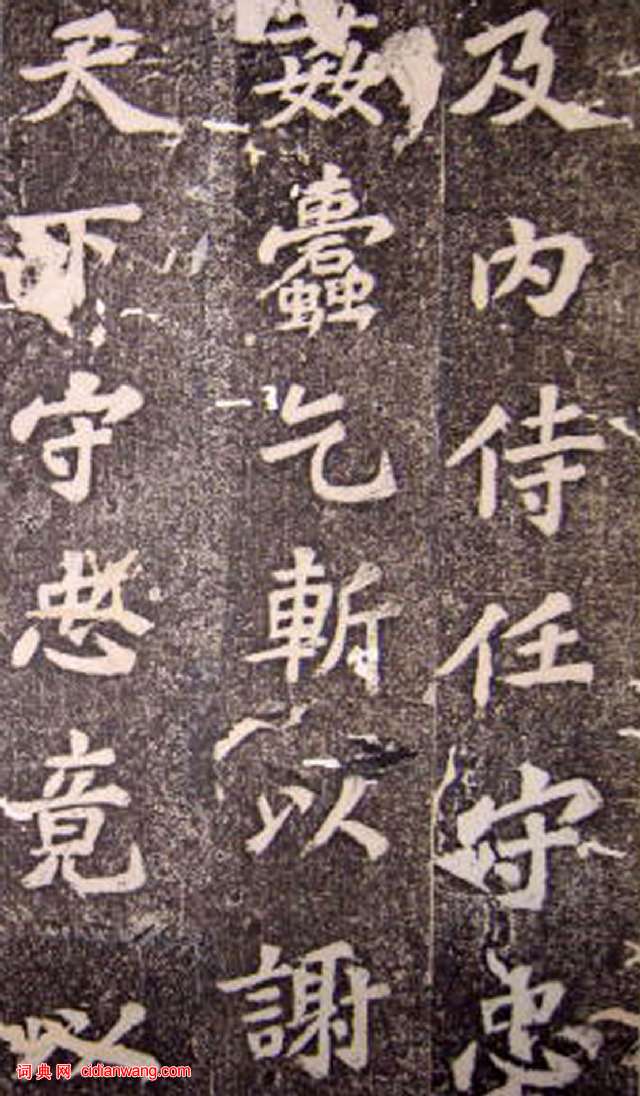 及内侍任守忠
姦蠹乞斬以謝
天下守忠竟以
词典网 cidianwang.com